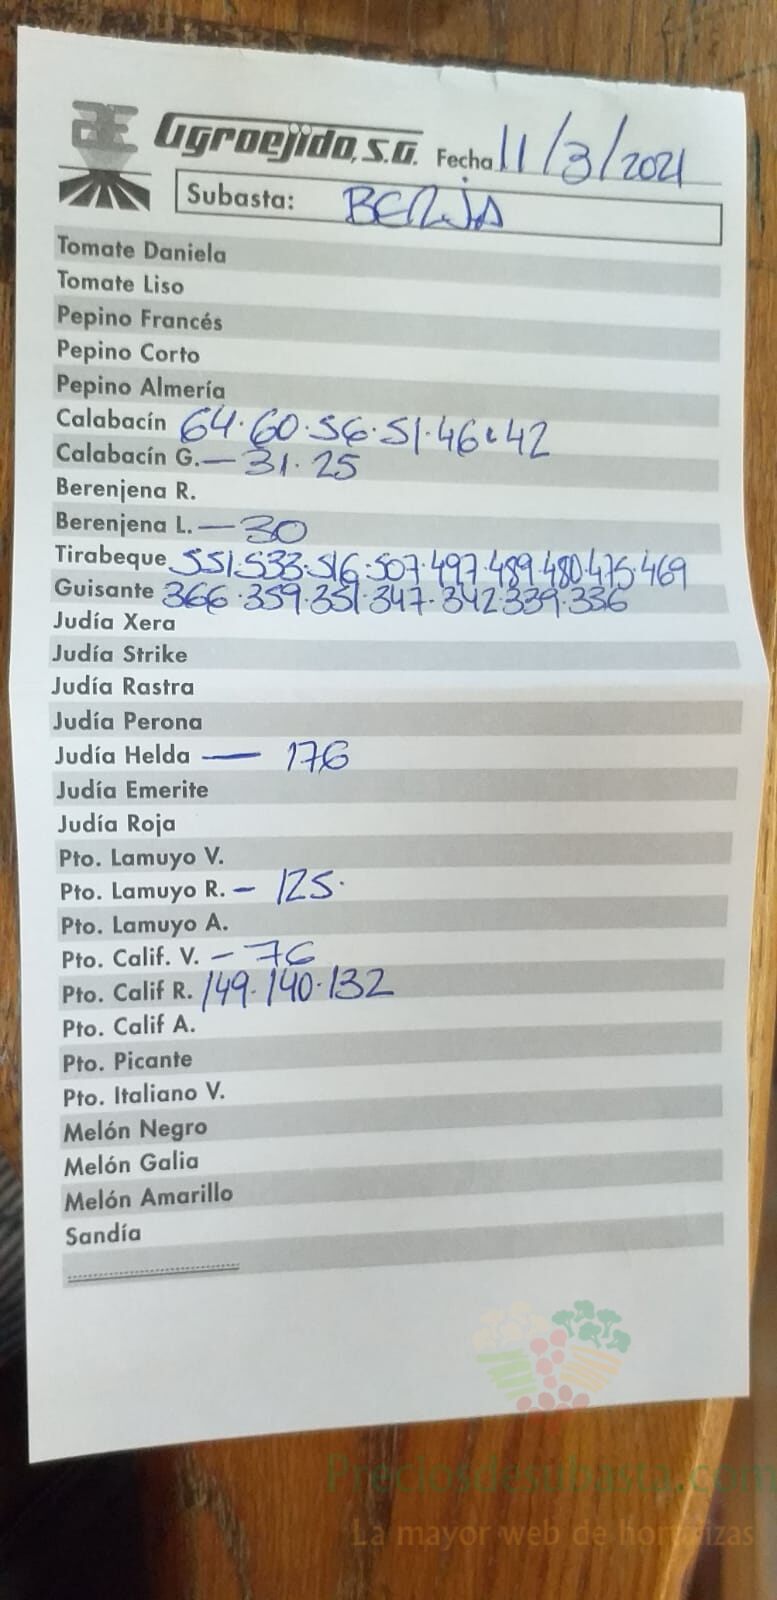 Agroejido, S.A. Fecha 11/3/2021
Subasta: BERJA
Tomate Daniela
Tomate Liso
Pepino Francés
Pepino Corto
Pepino Almería
Calabacín 64.60.56.51.46.42
Calabacín G. — 31.25
Berenjena R.
Berenjena L. — 30
Tirabeque 551.533.516.507.497.489.480.475.469
Guisante 366.359.351.347.342.339.336
Judía Xera
Judía Strike
Judía Rastra
Judía Perona
Judía Helda — 176
Judía Emerite
Judía Roja
Pto. Lamuyo V.
Pto. Lamuyo R. — 125.
Pto. Lamuyo A.
Pto. Calif. V. — 76
Pto. Calif R. 149.140.132
Pto. Calif A.
Pto. Picante
Pto. Italiano V.
Melón Negro
Melón Galia
Melón Amarillo
Sandía
Preciosdesubasta.com
La mayor web de hortalizas